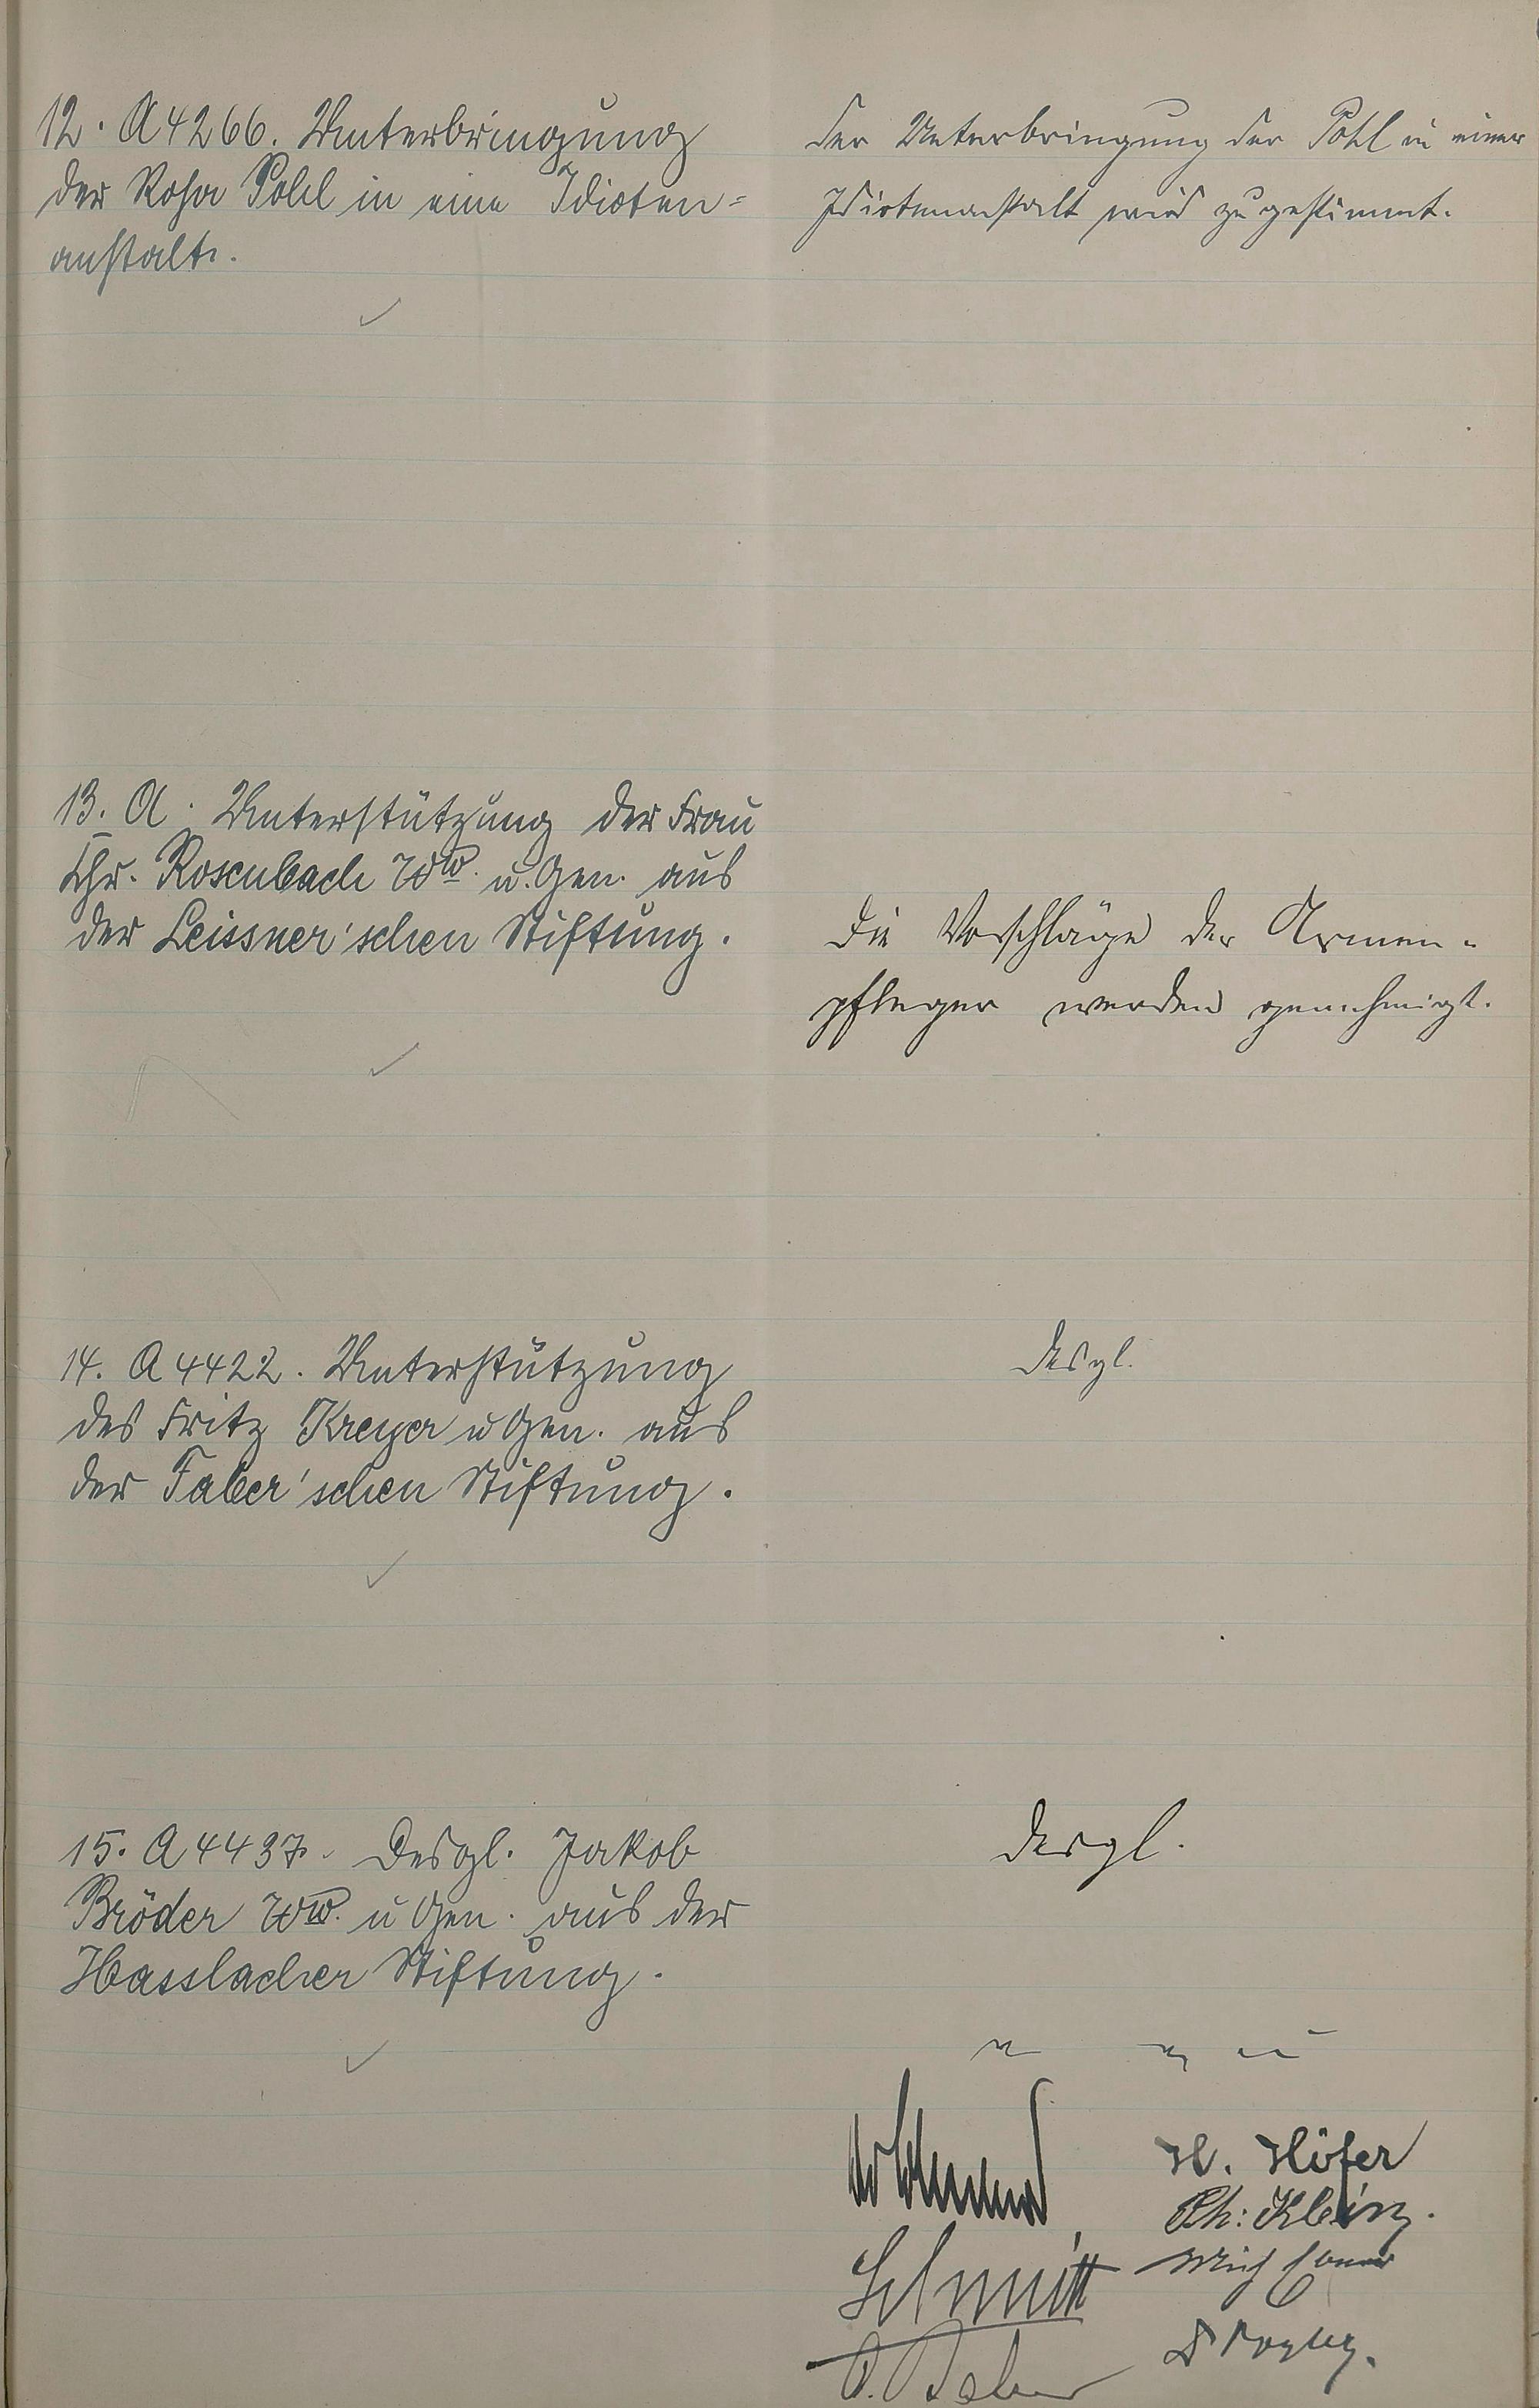 12. A 4266. Unterbringung
der Rosa Pohl in eine Idioten=
anstalt.
Der Unterbringung der Pohl in einer
Idiotenanstalt wird zugestimmt.
13. A. Unterstützung der Frau
Chr. Rosenbach Ww. u. Gen. aus
der Leissner'schen Stiftung.
Die Vorschläge der Armen-
pfleger werden genehmigt.
14. A 4422. Unterstützung
des Fritz Kreyer u Gen. aus
der Faber'schen Stiftung.
desgl.
15. A 4437. Desgl. Jakob
Bröder Ww. u Gen. aus der
Hasslacher Stiftung.
desgl.
H. Höfer
Ph: Klein
Schmitt